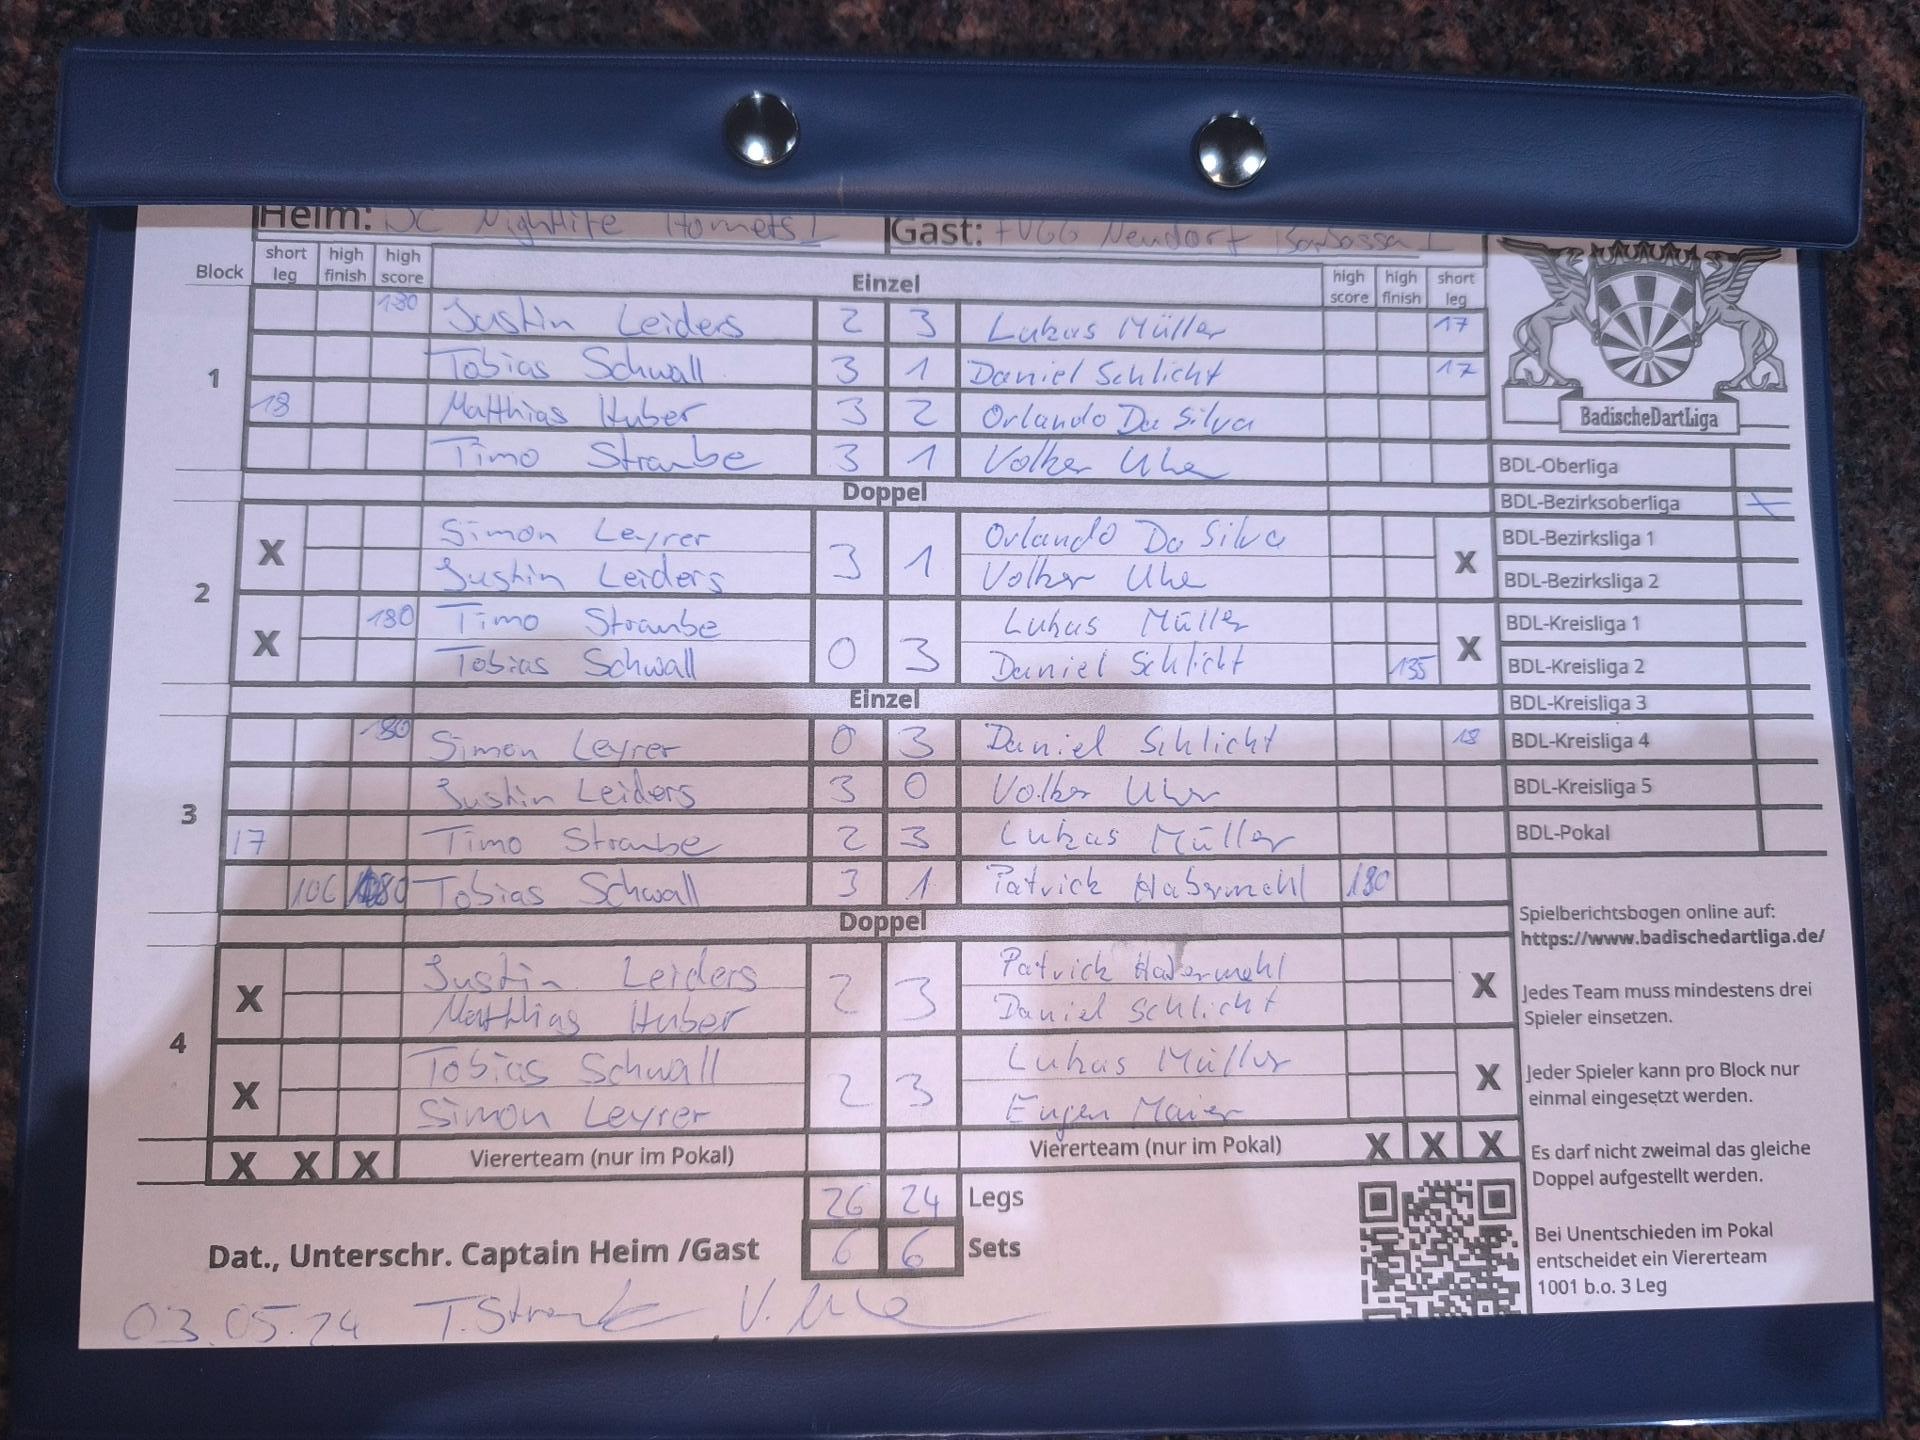 Heim: DC Nightlife Hornets I Gast: FVgg Neudorf Barbossa I
Block short leg high finish high score Einzel high score high finish short leg
1
180 Justin Leiders 2 3 Lukas Müller 17
Tobias Schwall 3 1 Daniel Schlicht 17
18 Matthias Huber 3 2 Orlando Da Silva
Timo Straube 3 1 Volker Uhe
Doppel
2
X Simon Leyrer 3 1 Orlando Da Silva X
Justin Leiders Volker Uhe
X 180 Timo Straube 0 3 Lukas Müller X
Tobias Schwall Daniel Schlicht 135
Einzel
3
180 Simon Leyrer 0 3 Daniel Schlicht 18
Justin Leiders 3 0 Volker Uher
17 Timo Straube 2 3 Lukas Müller
106 180 Tobias Schwall 3 1 Patrick Habermehl 180
Doppel
4
X Justin Leiders 2 3 Patrick Habermehl X
Matthias Huber Daniel Schlicht
X Tobias Schwall 2 3 Lukas Müller X
Simon Leyrer Eugen Maier
X X X Viererteam (nur im Pokal) Viererteam (nur im Pokal) X X X
26 24 Legs
Dat., Unterschr. Captain Heim /Gast 6 6 Sets
03.05.24 T. Straube V. Uhe
BadischeDartLiga
BDL-Oberliga
BDL-Bezirksoberliga X
BDL-Bezirksliga 1
BDL-Bezirksliga 2
BDL-Kreisliga 1
BDL-Kreisliga 2
BDL-Kreisliga 3
BDL-Kreisliga 4
BDL-Kreisliga 5
BDL-Pokal
Spielberichtsbogen online auf:
https://www.badischedartliga.de/
Jedes Team muss mindestens drei
Spieler einsetzen.
Jeder Spieler kann pro Block nur
einmal eingesetzt werden.
Es darf nicht zweimal das gleiche
Doppel aufgestellt werden.
Bei Unentschieden im Pokal
entscheidet ein Viererteam
1001 b.o. 3 Leg